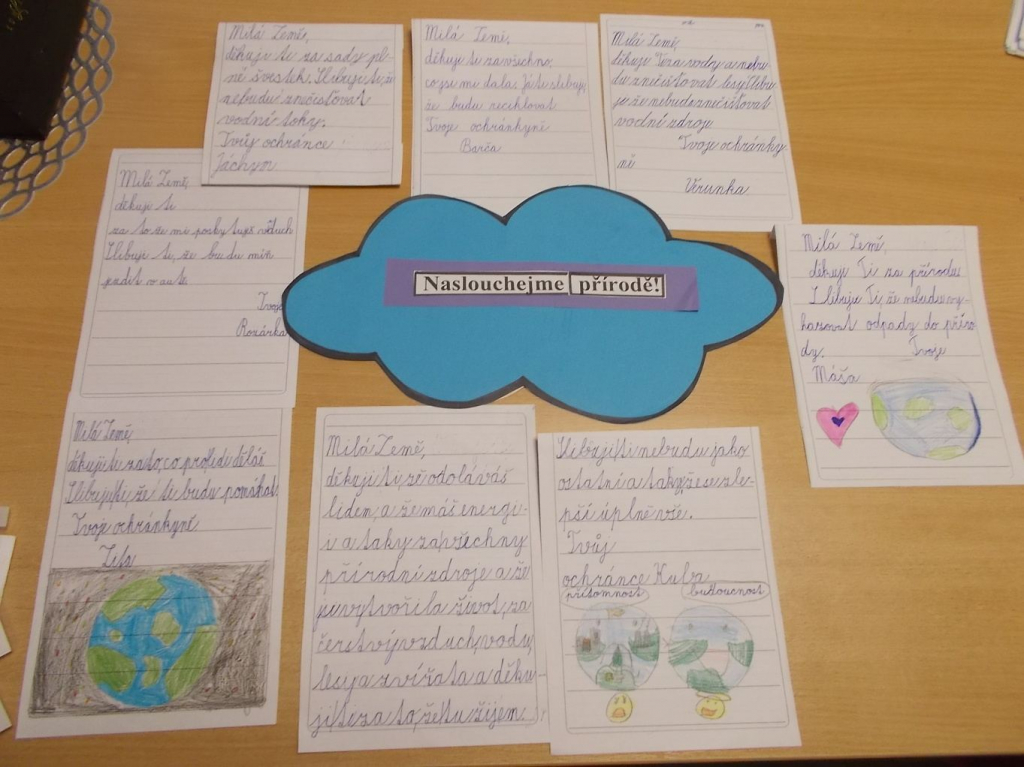 Milá Země,
děkuji ti za sady pl-
né švestek. Slibuji ti, že
nebudu znečisťovat
vodní toky.
Tvůj ochránce
Jáchym
Milá Zemi,
děkuji ti za všechno,
co jse mi dala. Já te slibuji,
že budu reciklovat
Tvoje ochránkyně
Barča
Milá Země,
děkuje Ti za vody a nebu
du znečisťovat lesy Slibu
je že nebude znečisťovat
vodní zdroje
Tvoje ochránky
ně
Verunka
Milá Země,
děkuji ti
za to že mi poskytuješ vzduch
Slibuji ti, že budu míň
jezdit v autě
Tvoje
Rozárka
Naslouchejme přírodě!
Milá Země,
děkuji Ti za přírodu
Slibuju Ti, že nebudu vy-
hazovat odpady do příro
dy. Tvoje
Máša
Milá Země,
děkuji ti za to, co pro lidi děláš
Slibuji ti, že ti budu pomáhat
Tvoje ochránkyně
Milá Země,
děkuji ti, že odoláváš
lidem, a že máš energi-
i a taky za všechny
přírodní zdroje a že
vytvořila život, za
čerstvý vzduch, vodu,
lesy a zvířata a děku-
ji ti za to, že tu žijem
Slibuji ti nebudu jako
ostatní a taky, že se zle-
pší úplně vše.
Tvůj
ochránce Kuba
přítomnost budoucnost